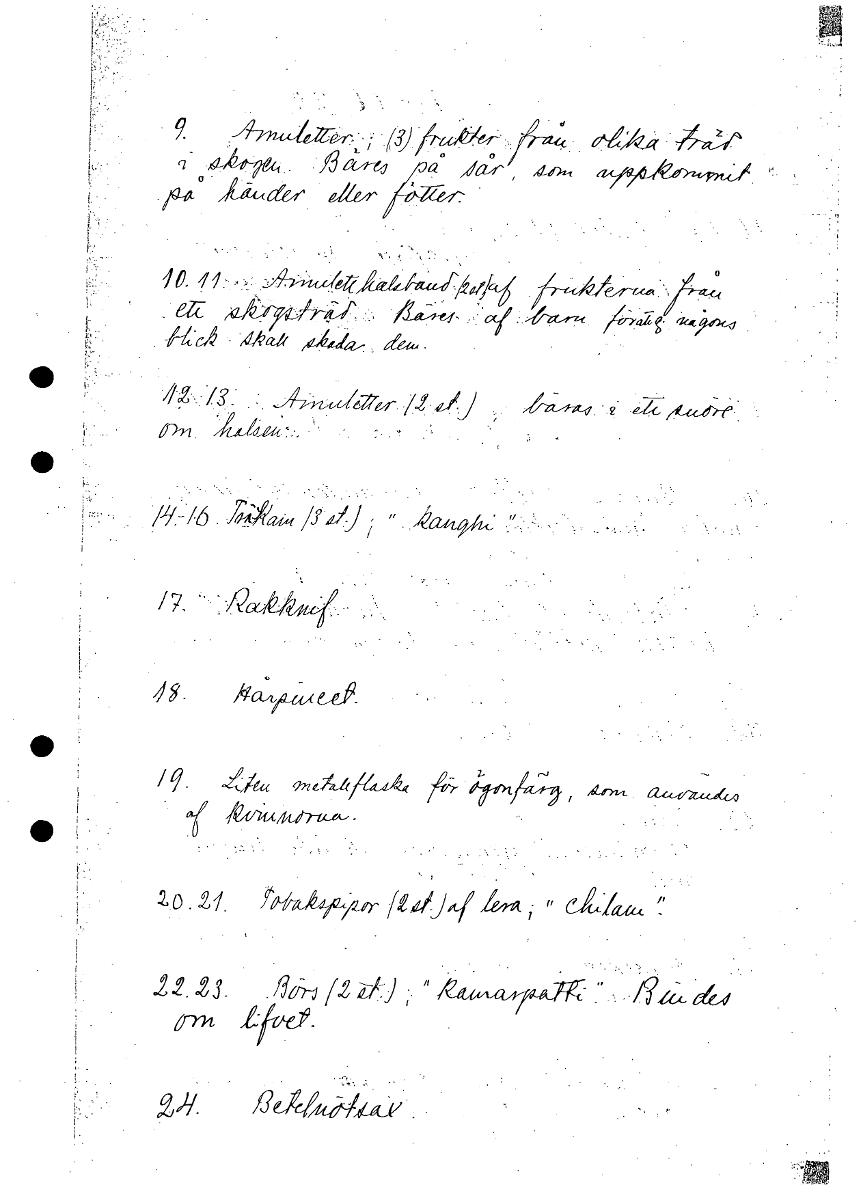 9. Amuletter; (3) frukter från olika träd
i skogen. Bäres på sår, som uppkommit
på händer eller fötter.
10.11. Amuletthalsband (2 st) af frukterna från
ett skogsträd. Bäres af barn för att ej någons
blick skall skada dem.
12-13. Amuletter (2 st.), bäras i ett snöre
om halsen.
14-16 Träkam (3 st.); "kanghi"
17. Rakknif
18. Hårpincet.
19. Liten metallflaska för ögonfärg, som användes
af kvinnorna.
20.21. Tobakspipor (2 st.) af lera; "Chilam".
22.23. Börs (2 st.); "kamarpatti". Bindes
om lifvet.
24. Betelnötsax